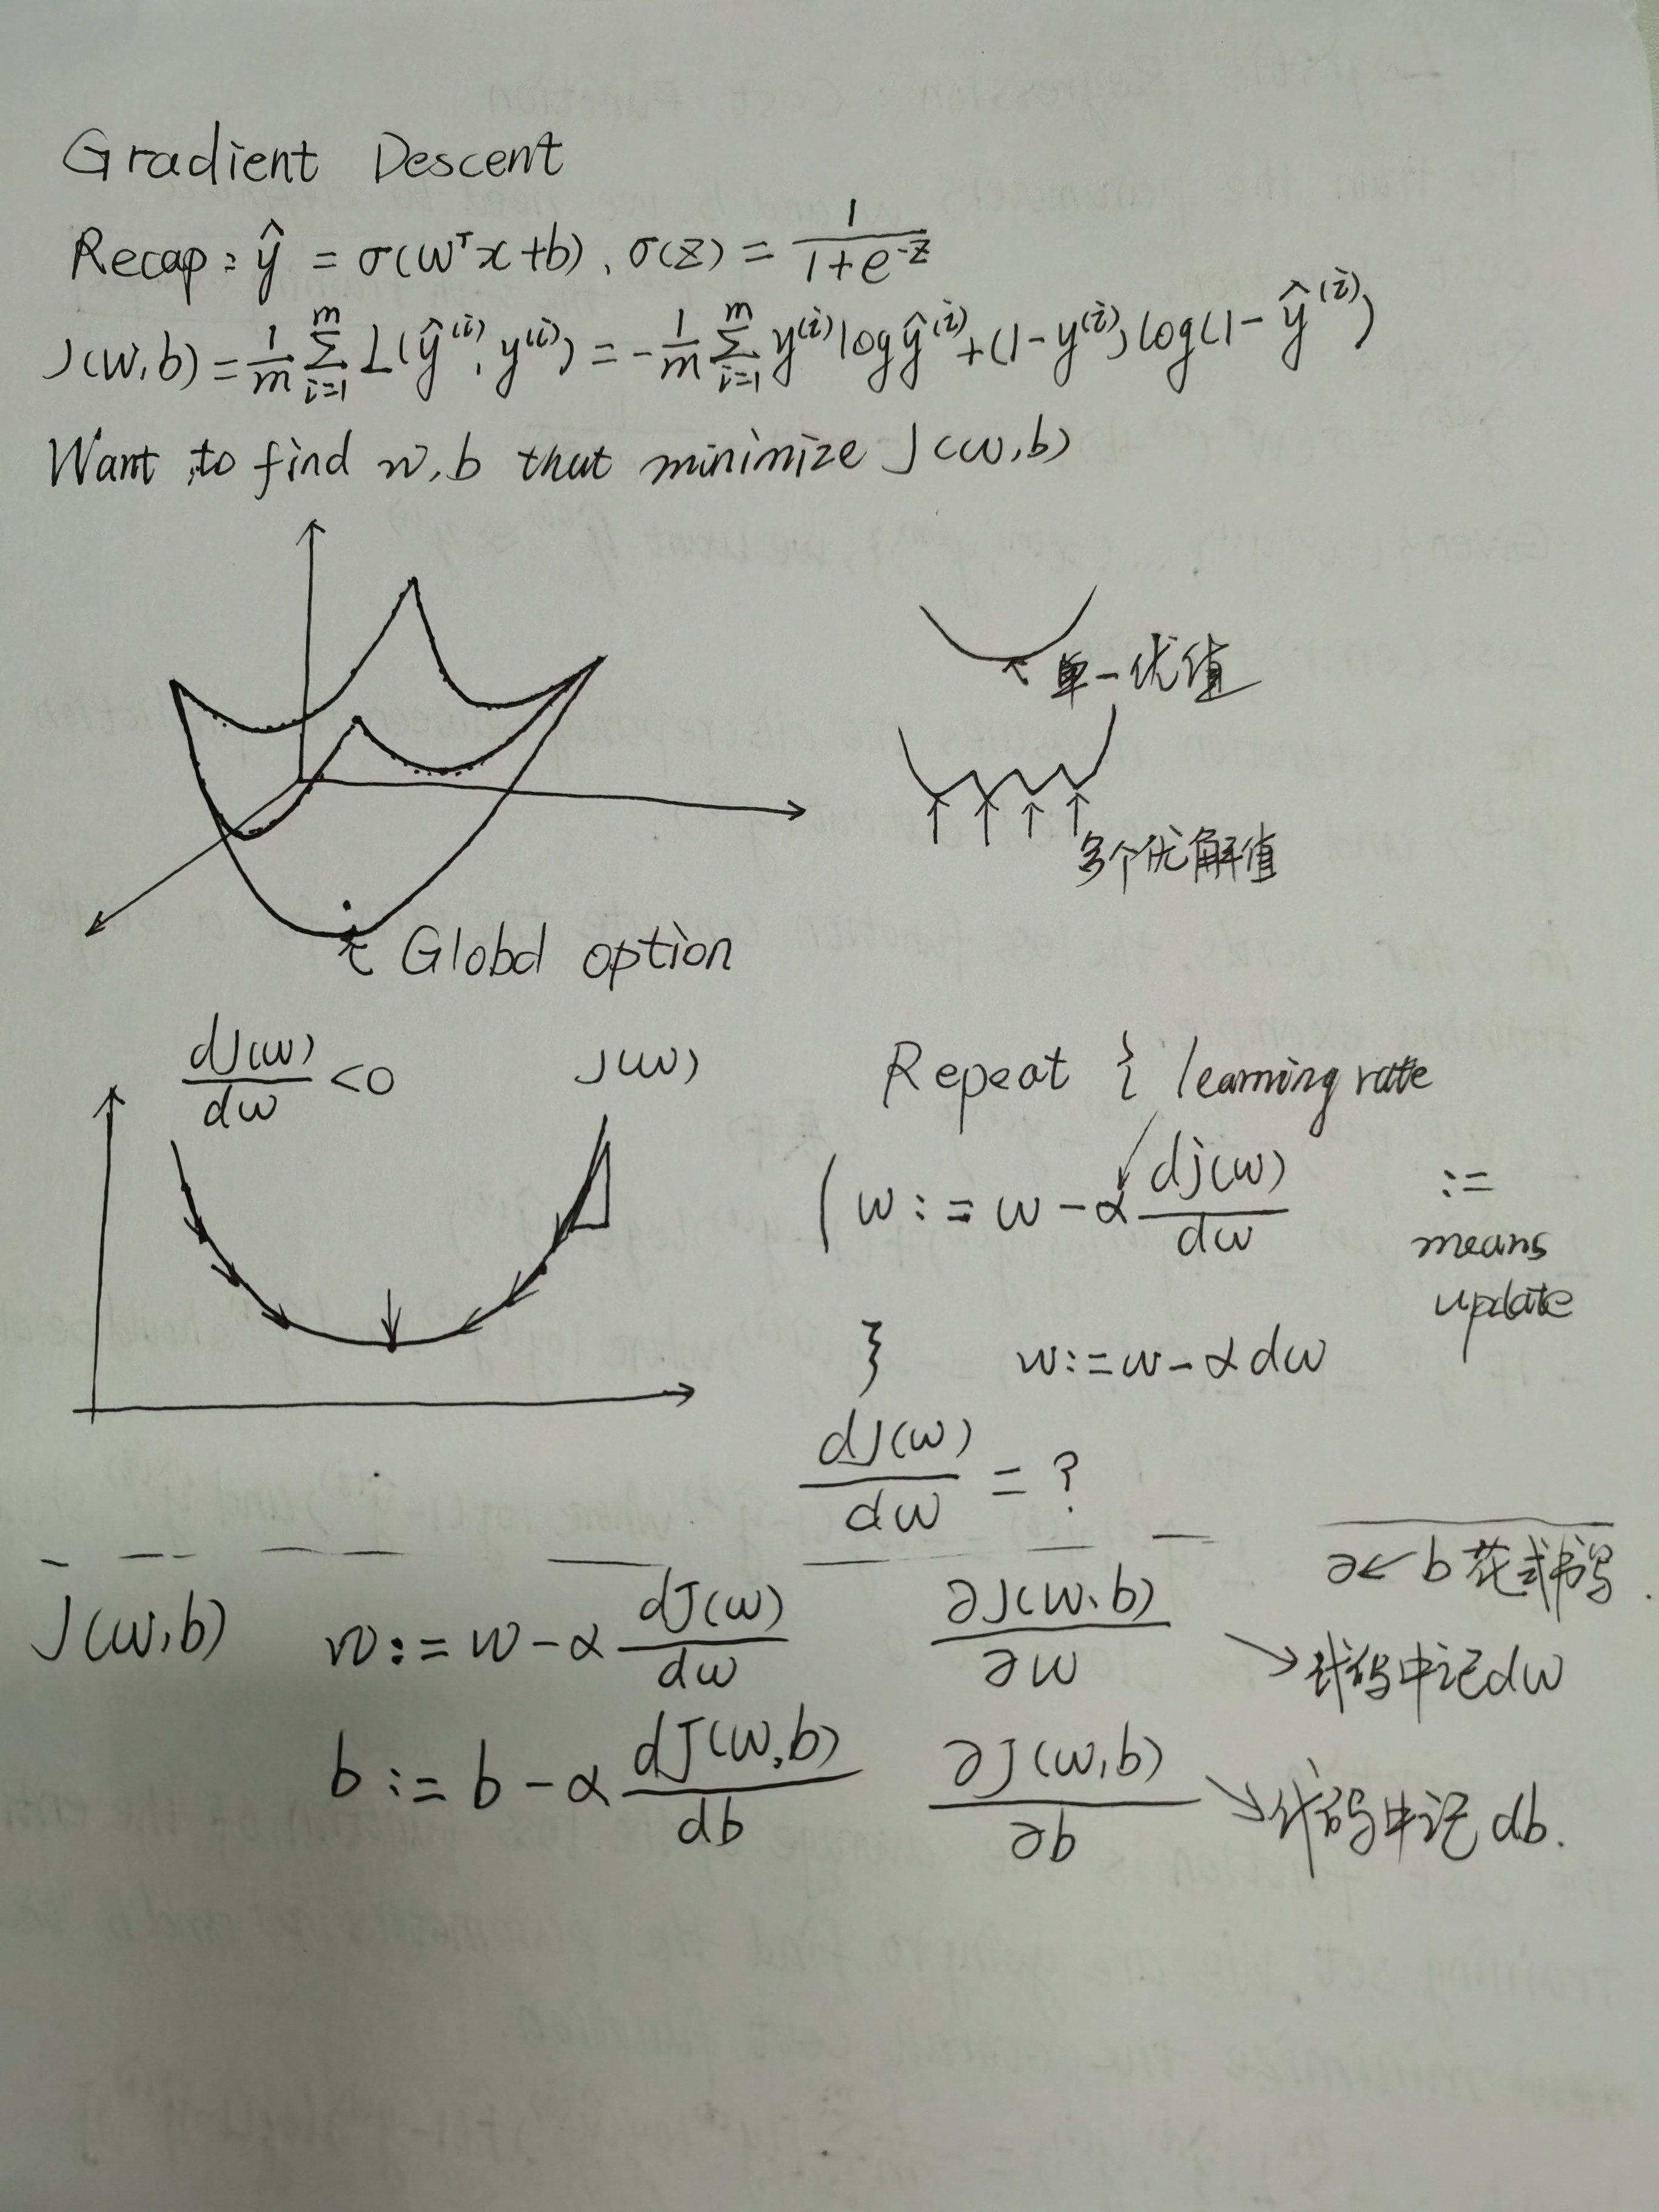 Gradient Descent
Recap: ŷ = σ(wᵀx+b), σ(z) = 1/(1+e⁻ᶻ)
J(w,b) = 1/m Σᵢ₌₁ᵐ L(ŷ⁽ⁱ⁾, y⁽ⁱ⁾) = -1/m Σᵢ₌₁ᵐ y⁽ⁱ⁾ log ŷ⁽ⁱ⁾ + (1-y⁽ⁱ⁾) log(1-ŷ⁽ⁱ⁾)
Want to find w,b that minimize J(w,b)
单一优值
多个优解值
Global option
dJ(w)/dw <0
J(w)
Repeat { learning rate
( w := w - α dj(w)/dw
:= 
means
update
} w:=w-αdw
dJ(w)/dw = ?
∂ ← b 花式书写.
J(w,b) w := w - α dJ(w)/dw ∂J(w,b)/∂w → 代码中记dw
b := b - α dJ(w,b)/db ∂J(w,b)/∂b → 代码中记 db.